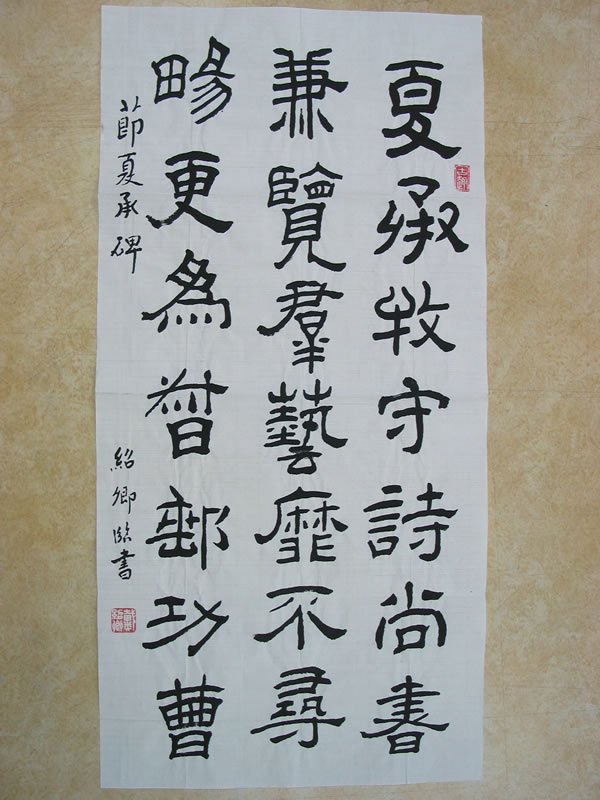 夏承牧守詩尚書
兼覽羣藝靡不尋
畼更為督郵功曹
莭夏承碑
紹卿臨書